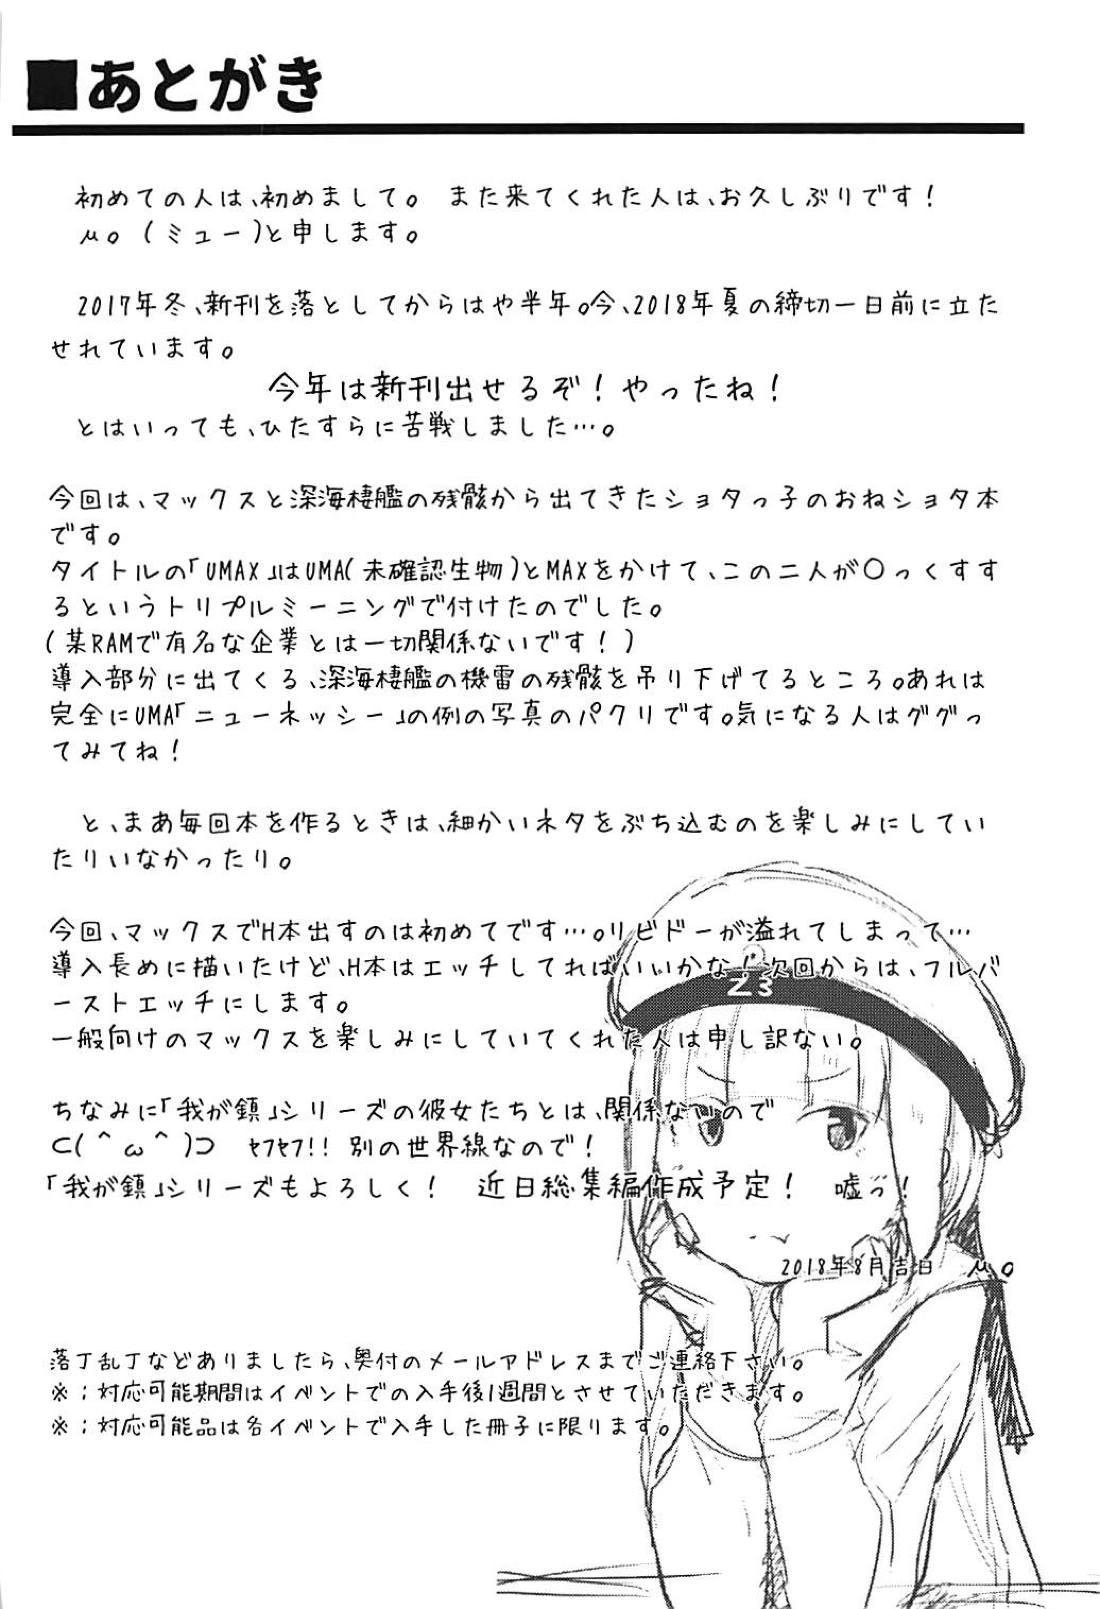 ■あとがき
初めての人は、初めまして。 また来てくれた人は、お久しぶりです！
μ。(ミュー)と申します。
2017年冬、新刊を落としてからはや半年。今、2018年夏の締切一日前に立た
せれています。
今年は新刊出せるぞ！やったね！
とはいっても、ひたすらに苦戦しました…。
今回は、マックスと深海棲艦の残骸から出てきたショタっ子のおねショタ本
です。
タイトルの「UMAX」はUMA(未確認生物)とMAXをかけて、この二人が〇っくすす
るというトリプルミーニングで付けたのでした。
(某RAMで有名な企業とは一切関係ないです！)
導入部分に出てくる、深海棲艦の機雷の残骸を吊り下げてるところ。あれは
完全にUMA「ニューネッシー」の例の写真のパクリです。気になる人はググっ
てみてね！
と、まあ毎回本を作るときは、細かいネタをぶち込むのを楽しみにしてい
たりいなかったり。
今回、マックスでH本出すのは初めてです…。リビドーが溢れてしまって…
導入長めに描いたけど、H本はエッチしてればいいかな！次回からは、フルバ
ーストエッチにします。
一般向けのマックスを楽しみにしていてくれた人は申し訳ない。
ちなみに「我が鎮」シリーズの彼女たちとは、関係ないので
⊂(＾ω＾)⊃ ｾﾌｾﾌ!! 別の世界線なので！
「我が鎮」シリーズもよろしく！ 近日総集編作成予定！ 嘘っ！
2018年8月吉日 μ。
落丁乱丁などありましたら、奥付のメールアドレスまでご連絡下さい。
※；対応可能期間はイベントでの入手後1週間とさせていただきます。
※；対応可能品は各イベントで入手した冊子に限ります。
Z3